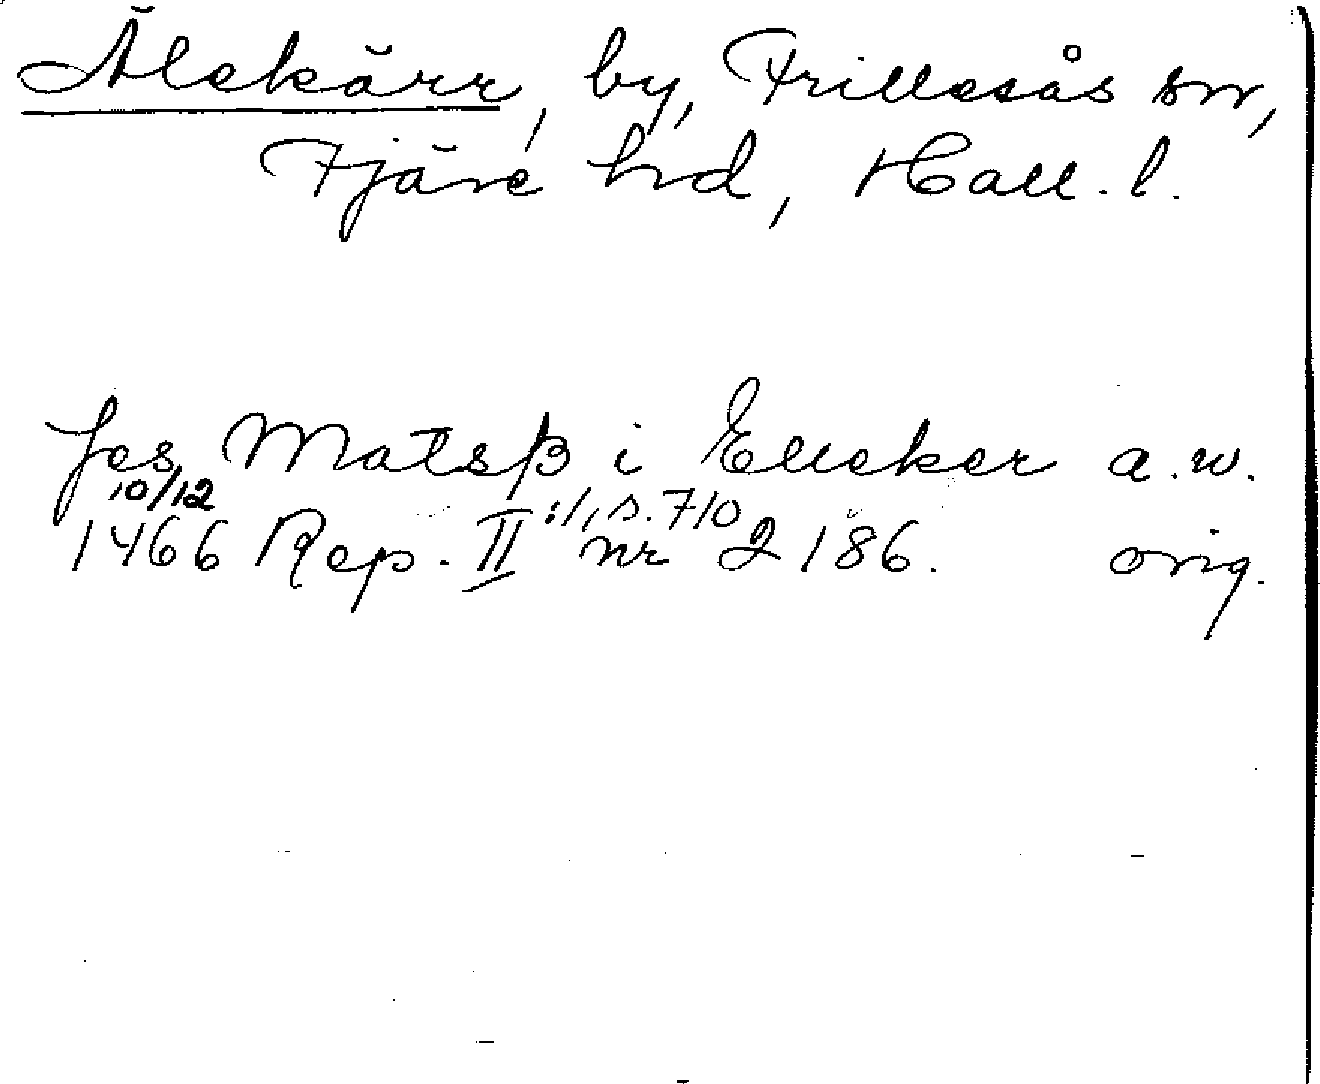 Älekärr, by, Frillesås sn,
Fjäre hd, Hall. l.
Jes Matsß i Elleker a.w.
10/12
1466 Rep. II :1, s. 710 nr 2186. orig.